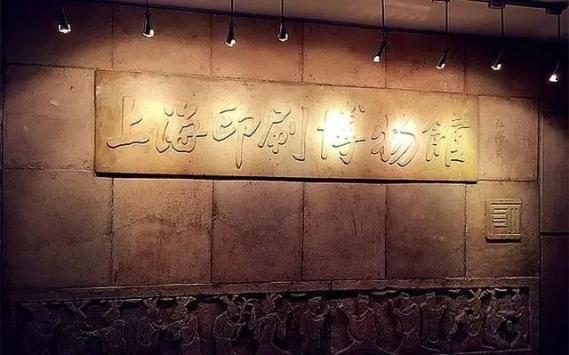 上海印刷博物館